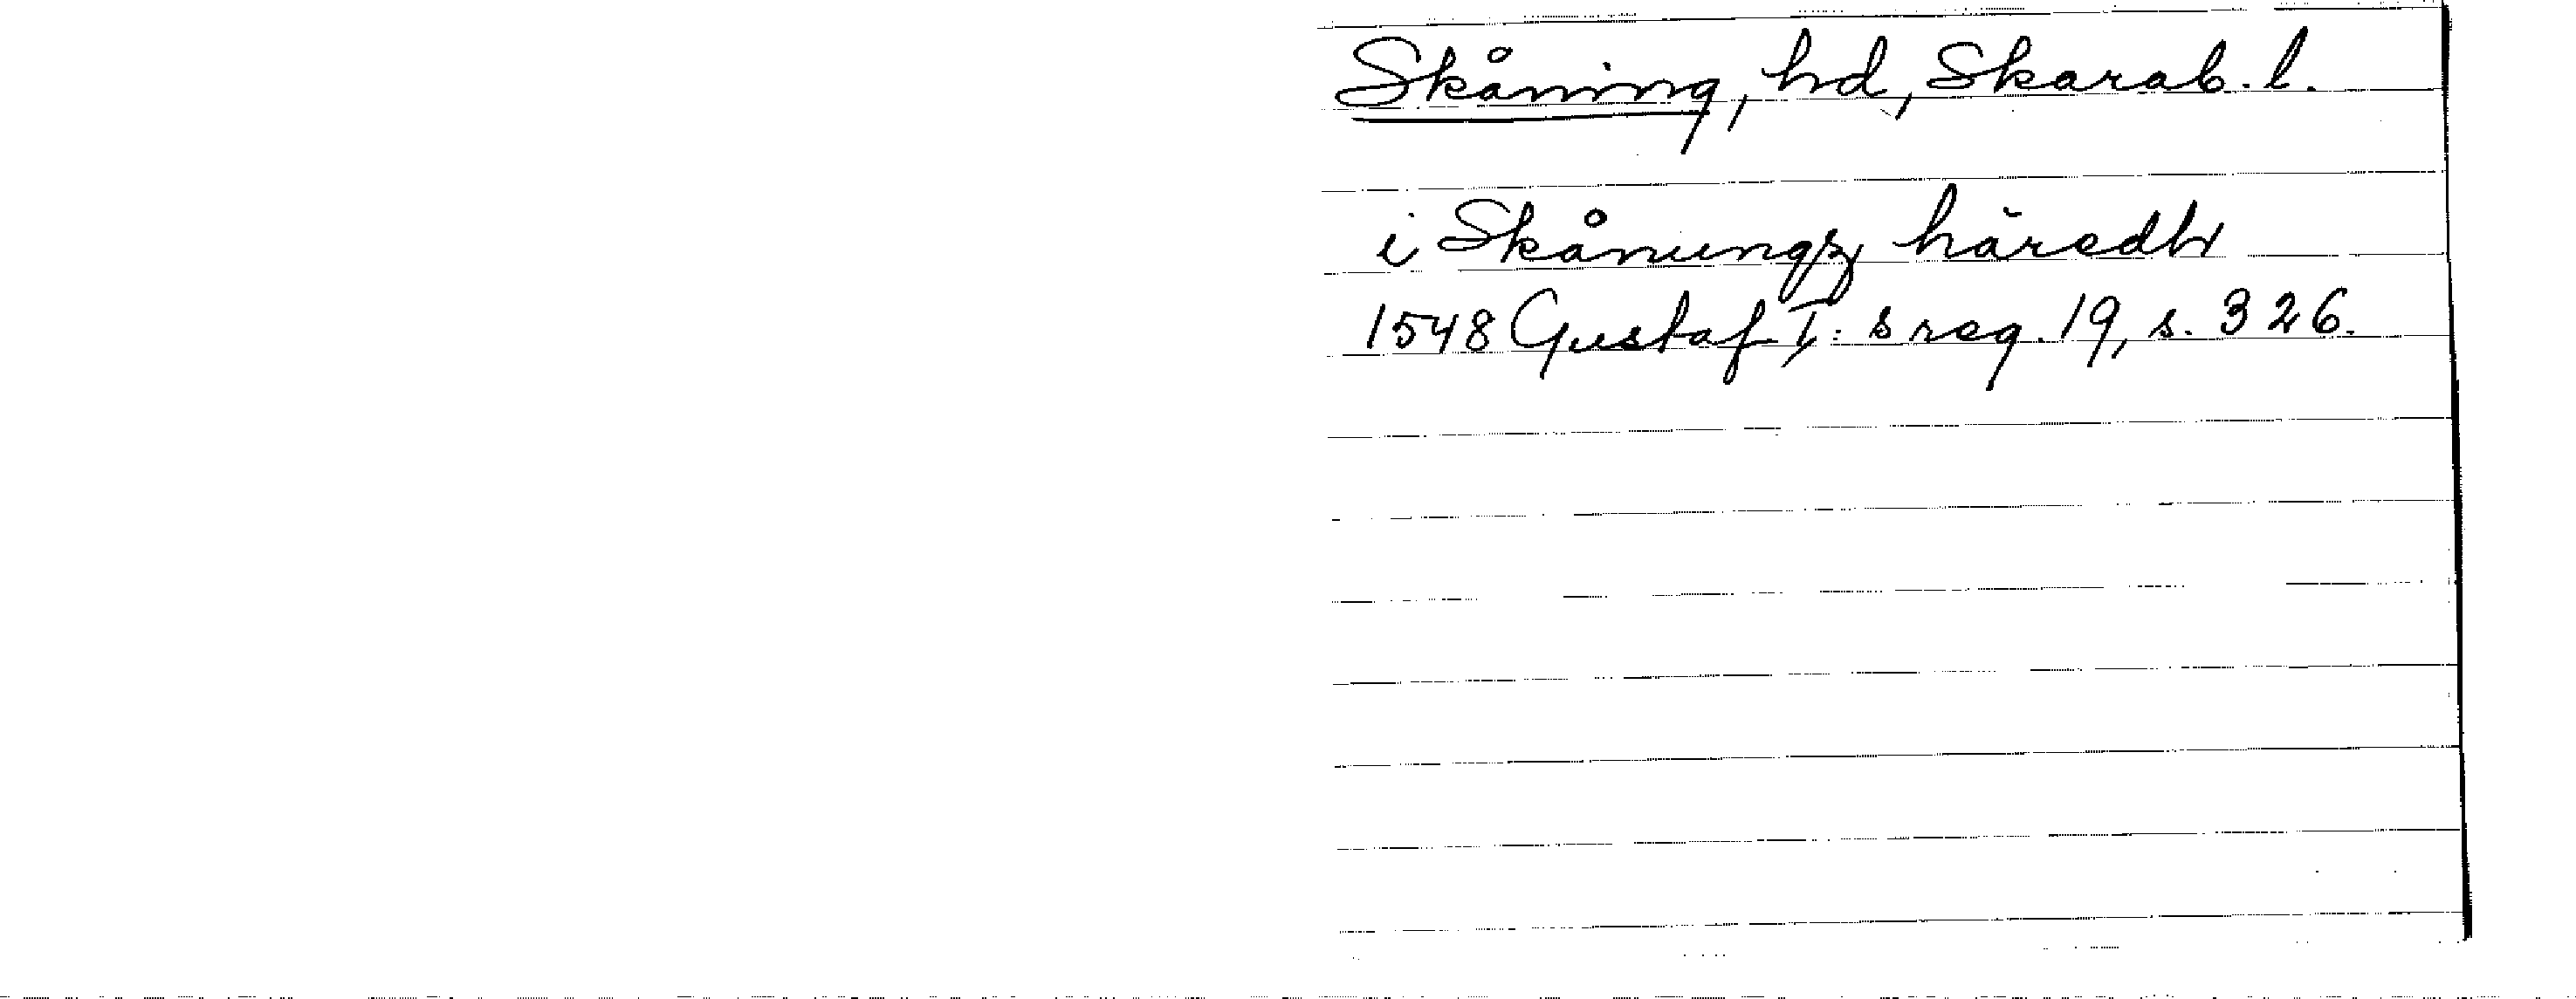 Skåning, hd, Skarab. l.
i Skånungz häredh
1548 Gustaf I: s reg. 19, s. 326.